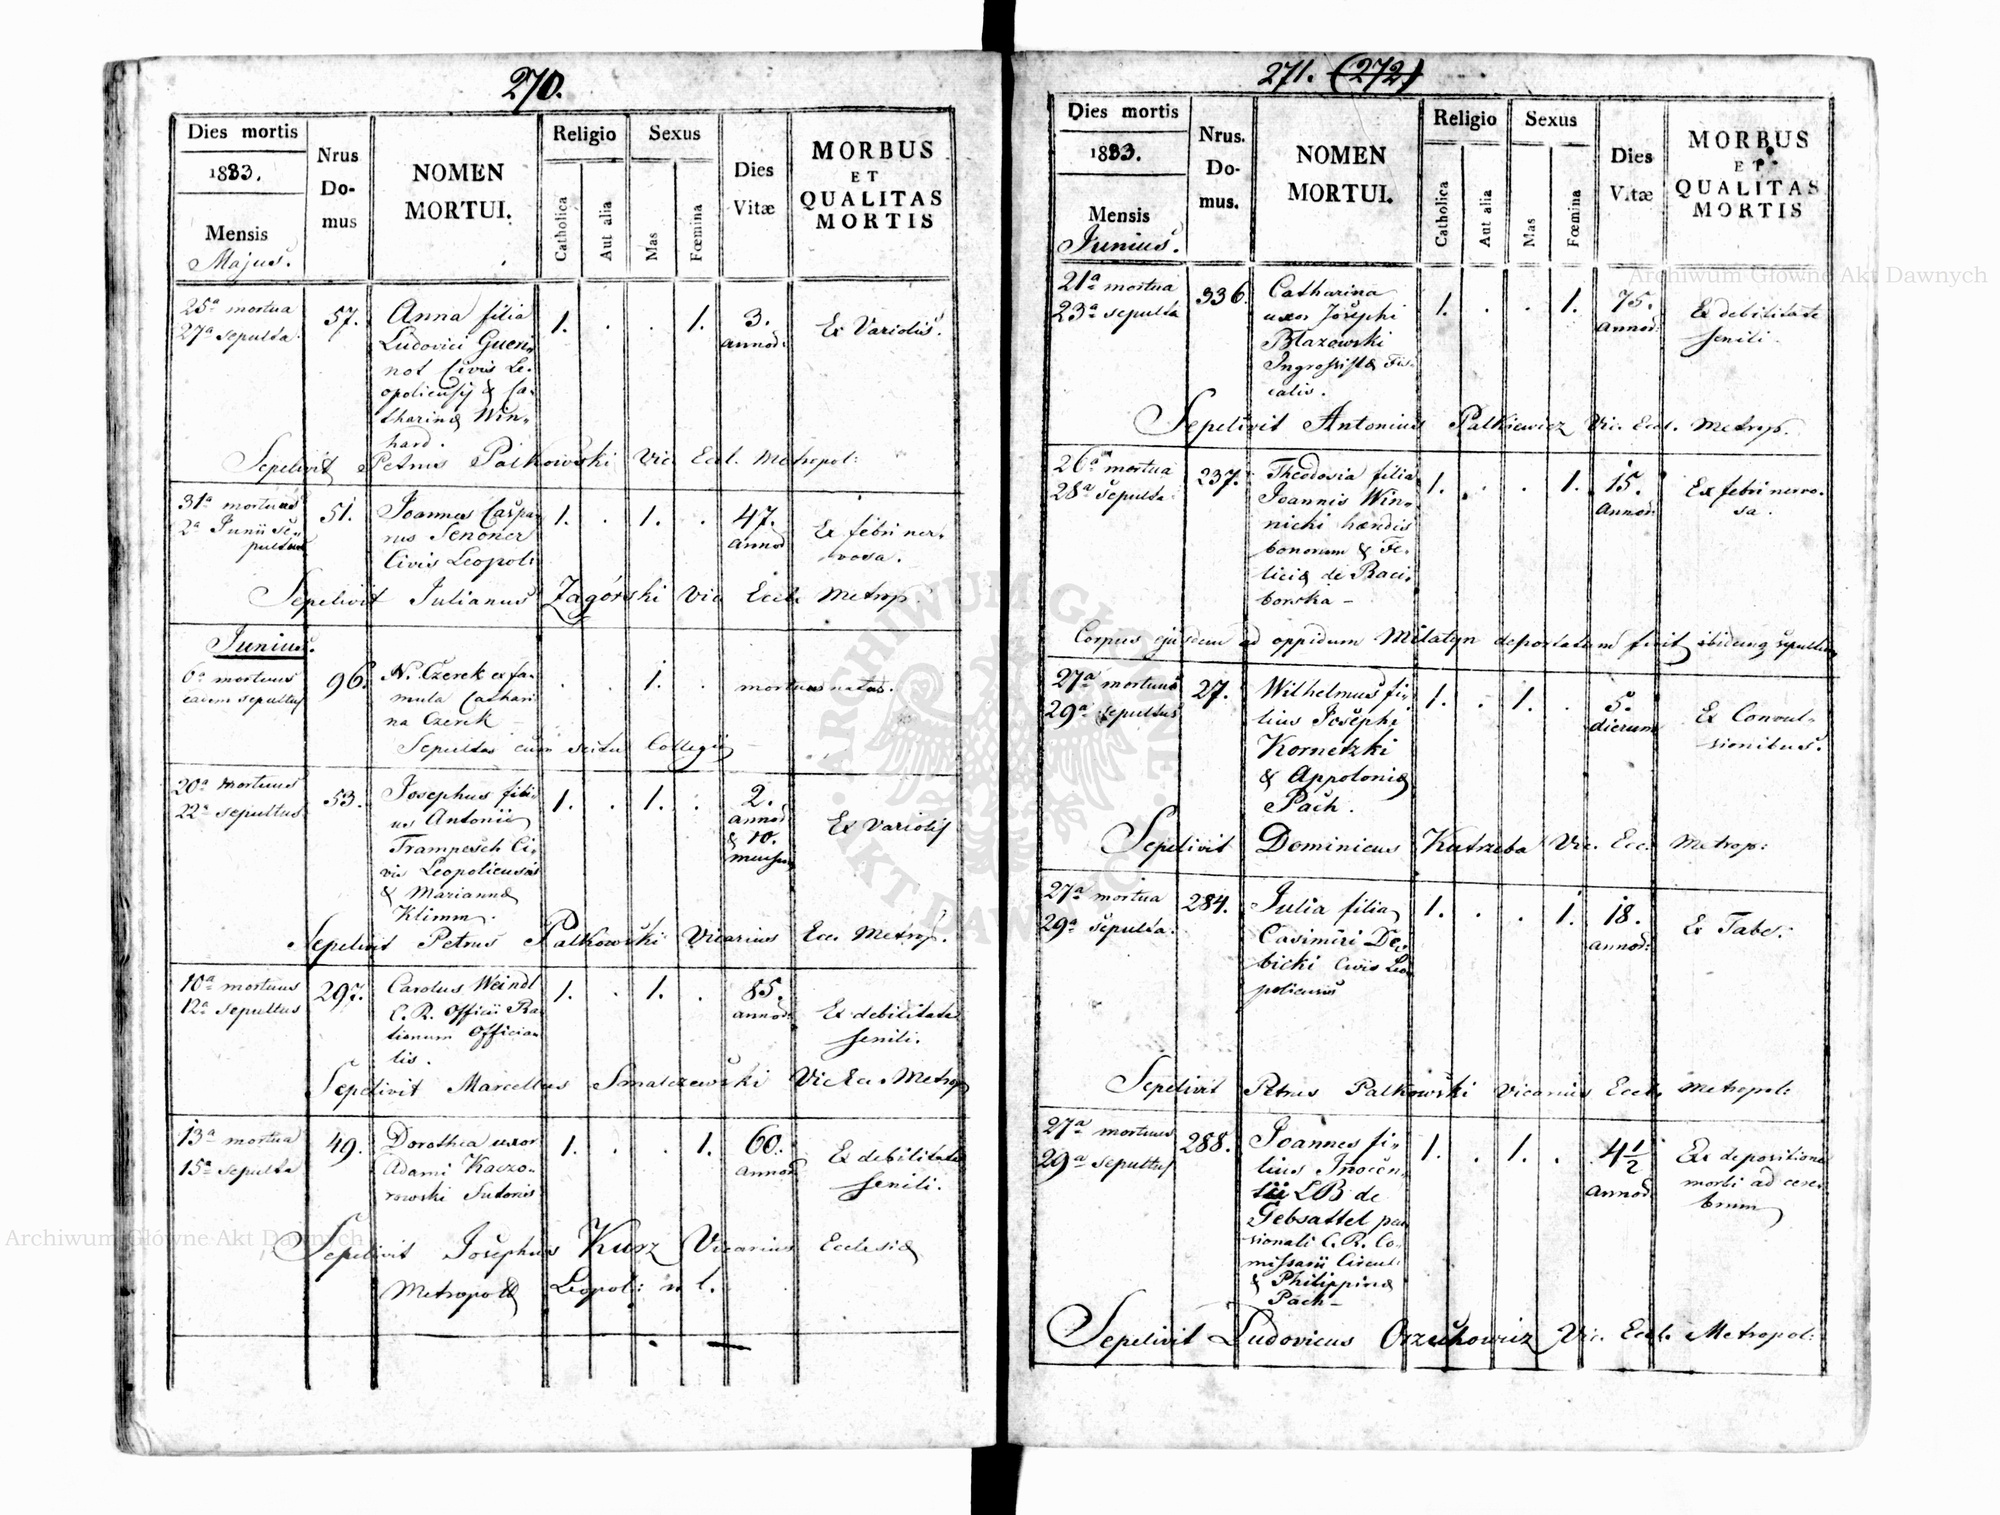 270.
Dies mortis
1833.
Mensis
Majus.
Nrus
Do-
mus
NOMEN
MORTUI.
Religio
Catholica
Aut alia
Sexus
Mas
Fœmina
Dies
Vitæ
MORBUS
ET
QUALITAS
MORTIS
25a mortua
27a sepulta.
57.
Anna filia
Ludovici Guen„
not Civis Le„
opoliensis & Ca„
tharinæ Win„
hard.
1. . . 1.
3.
annor:
Ex Variolis.
Sepelivit Petrus Palkowski Vic Eccl. Metropol:
31a mortuus
2a Junii se„
pultus
51.
Joannes Caspa„
rus Senoner
Civis Leopol:
1. . 1. .
47.
annor
Ex febri ner„
vosa.
Sepelivit Julianus Zagórski Vic Eccl. Metrop.
Junius.
6a mortuus
eadem sepultus
96.
N. Czerek ex fa„
mula Cathari
na Czerek —
. . 1. .
mortuus natus.
Sepultus cum scitu Collegii —
20a mortuus
22a sepultus
53.
Josephus fili„
us Antonii
Trampesch Ci„
vis Leopoliensis
& Mariannæ
Klimm.
1. . 1. .
2.
annor
& 10.
mensium
Ex Variolis
Sepelivit Petrus Palkowski Vicarius Ecc. Metrop.
10a mortuus
12a sepultus
297.
Carolus Weindl
C. R. Officii Ra„
tionum Officia„
lis.
1. . 1. .
85.
annor:
Ex debilitate
senili.
Sepelivit Marcellus Smalczewski Vic Ecc. Metrop
13a mortua
15a sepulta
49.
Dorothea uxor
Adami Kaczo„
rowski Sutoris
1. . . 1.
60.
annor
Ex debilitate
senili.
Sepelivit Josephus Kurz Vicarius Ecclesiæ
Metropolit Leopol: r. l.
271. (272)
Dies mortis
1833.
Mensis
Junius.
Nrus.
Do-
mus.
NOMEN
MORTUI.
Religio
Catholica
Aut alia
Sexus
Mas
Fœmina
Dies
Vitæ
MORBUS
ET
QUALITAS
MORTIS
21a mortua
23a sepulta
336.
Catharina
uxor Josephi
Błazowski
Ingrossistæ Fis„
calis.
1. . . 1.
75.
annor:
Ex debilitate
senili.
Sepelivit Antonius Palkiewicz Vic. Eccl. Metrop.
26a mortua
28a sepulta.
237.
Theodosia filia
Joannis Win„
nicki hæredis
bonorum & Fe„
liciæ de Raci„
borska —
1. . . 1.
15.
annor
Ex febri nervo„
sa.
Corpus ejusdem ad oppidum Milatyn deportatum fuit ibidemq sepultum
27a mortuus
29a sepultus
27.
Wilhelmus fi„
lius Josephi
Kornetzki
& Appoloniæ
Pach.
1. . 1. .
5.
dierum
Ex Convul„
sionibus.
Sepelivit Dominicus Kutrzeba Vic. Ecc. Metrop:
27a mortua
29a sepulta.
284.
Julia filia
Casimiri De„
bicki Civis Leo
poliensis
1. . . 1.
18.
annor:
Ex Tabe.
Sepelivit Petrus Palkowski Vicarius Eccl. Metropol:
27a mortuus
29a sepultus
288.
Joannes fi„
lius Inocen„
tii LB de
Gebsattel pen
sionati C. R. Co„
missarii Circul.
& Philippinæ
Pach —
1. . 1. .
4 1/2
annor
Ex depositione
morbi ad cere„
brum
Sepelivit Ludovicus Orzechowicz Vic. Eccl. Metropol:
Archiwum Główne Akt Dawnych
Archiwum Główne Akt Dawnych
ARCHIWUM GŁÓWNE
AKT DAWNYCH